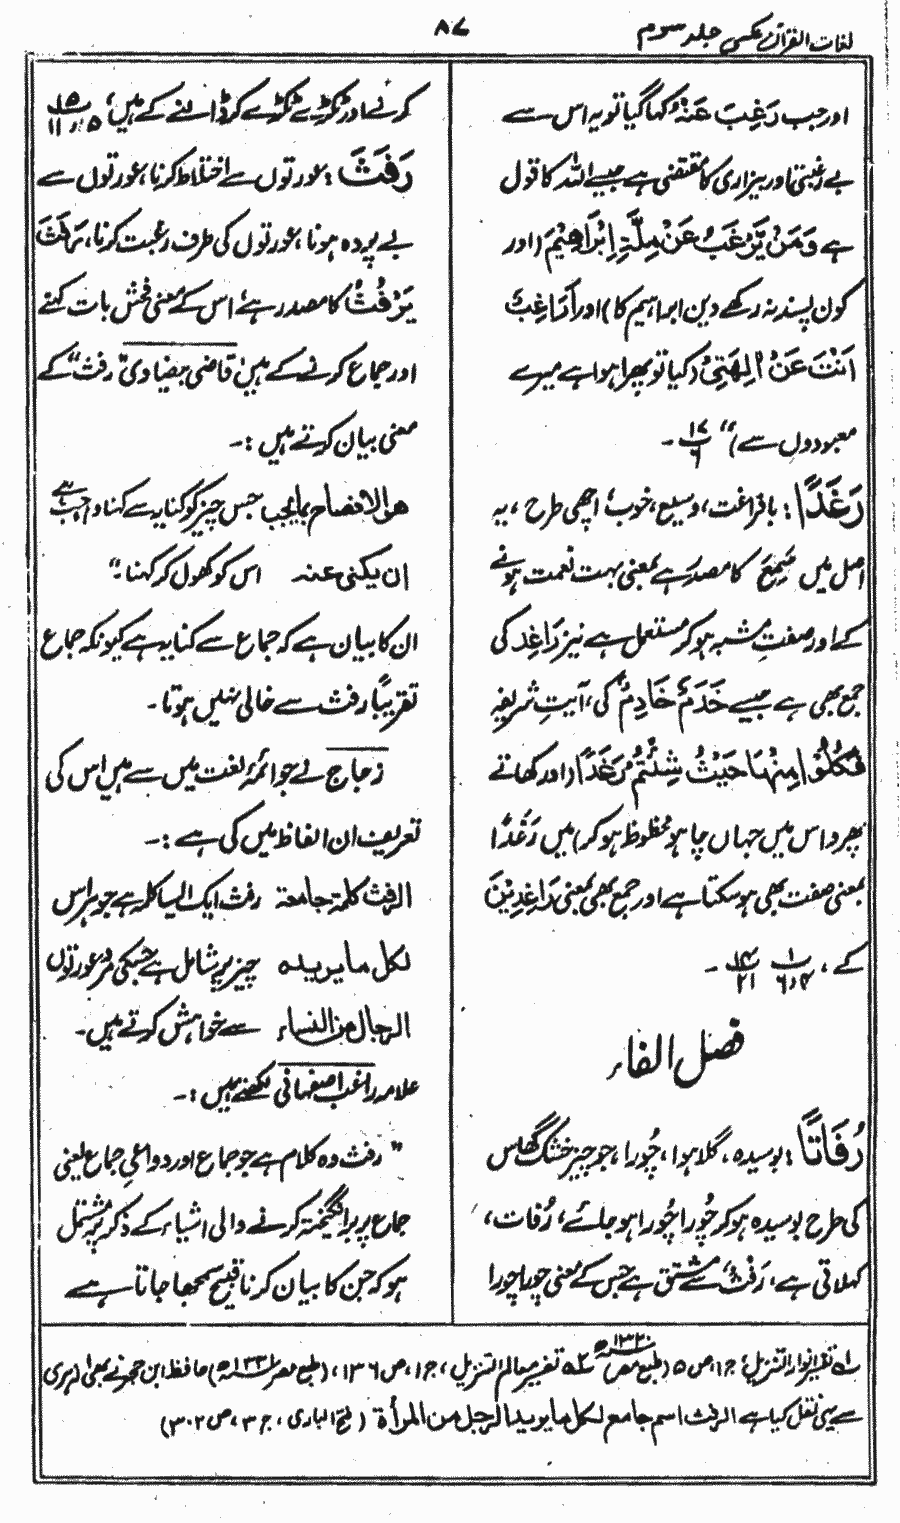 لغات القرآن عکسی جلد سوم
۸۷
اور جب رَغِبَ عَنْہُ کہا گیا تو یہ اس سے
بے رغبتی اور بیزاری کا مقتضی ہے جیسے اللہ کا قول
ہے وَمَنْ یَّرْغَبُ عَنْ مِلَّۃِ اِبْرَاھِیْمَ (اور
کون پسند نہ رکھے دین ابراہیم کا) اور أَرَاغِبٌ
اَنْتَ عَنْ اٰلِھَتِیْ (کیا تو پھرا ہوا ہے میرے
معبودوں سے)" ۱۶/۶ ۔
رَغَدًا: با فراغت، وسیع، خوب، اچھی طرح، یہ
اصل میں سَمِعَ کا مصدر ہے بمعنی بہت نعمت ہونے
کے اور صفتِ مشبہ ہو کر مستعمل ہے نیز رَاغِد کی
جمع بھی ہے جیسے خَدَمٌ خَادِمٌ کی، آیتِ شریفہ
فَکُلُوْا مِنْہَا حَیْثُ شِئْتُمْ رَغَدًا (اور کھاتے
پھرو اس میں جہاں چاہو محظوظ ہو کر) میں رَغَدًا
بمعنی صفت بھی ہو سکتا ہے اور جمع بھی بمعنی رَاغِدِیْنَ
کے، ۱/۴،۶ ۱۴/۲۱ ۔
فصل الفاء
رُفَاتًا: بوسیدہ، گلا ہوا، چُورا، جو چیز خشک گھاس
کی طرح بوسیدہ ہو کر چُورا چُورا ہو جائے، رُفات،
کہلاتی ہے، رَفْتٌ سے مشتق ہے جس کے معنی چورا چورا
کرنے اور ٹکڑے ٹکڑے کر ڈالنے کے ہیں، ۱۵/۵،۱۱
رَفَثَ: عورتوں سے اختلاط کرنا، عورتوں سے
بے پردہ ہونا، عورتوں کی طرف رغبت کرنا، رَفَثَ
یَرْفُثُ کا مصدر ہے، اس کے معنی فحش بات کہنے
اور جماع کرنے کے ہیں، قاضی بیضاوی "رفث" کے
معنی بیان کرتے ہیں :۔
ھو الافصاح بما یجب جس چیز کو کنایہ سے کہنا واجب ہے
ان یکنی عنہ اس کو کھول کر کہنا۔"
ان کا بیان ہے کہ جماع سے کنایہ ہے کیونکہ جماع
تقریبًا رفث سے خالی نہیں ہوتا۔
زجاج نے جو ائمۂ لغت میں سے ہیں اس کی
تعریف ان الفاظ میں کی ہے :۔
الرفث کلمۃ جامعۃ رفث ایک ایسا کلمہ ہے جو ہر اس
لکل ما یریدہ چیز پر شامل ہے جسکی مرد عورتوں
الرجال من النساء سے خواہش کرتے ہیں۔
علامہ راغب اصفہانی لکھتے ہیں :۔
"رفث وہ کلام ہے جو جماع اور دواعیِ جماع یعنی
جماع پر برانگیختہ کرنے والی اشیاء کے ذکر پر مشتمل
ہو کہ جن کا بیان کرنا قبیح سمجھا جاتا ہے
لہ تفسیر انوار التنزیل، ج ۱، ص ۵ (طبع مصر ۱۳۲۰ھ) ۲ہ تفسیر معالم التنزیل، ج ۱، ص ۱۳۶، (طبع مصر ۱۳۳۱ھ) حافظ ابن حجر نے بھی ازہری
سے یہی نقل کیا ہے الرفث اسم جامع لکل ما یرید الرجل من المرأۃ (فتح الباری، ج ۳، ص ۳۰۲)